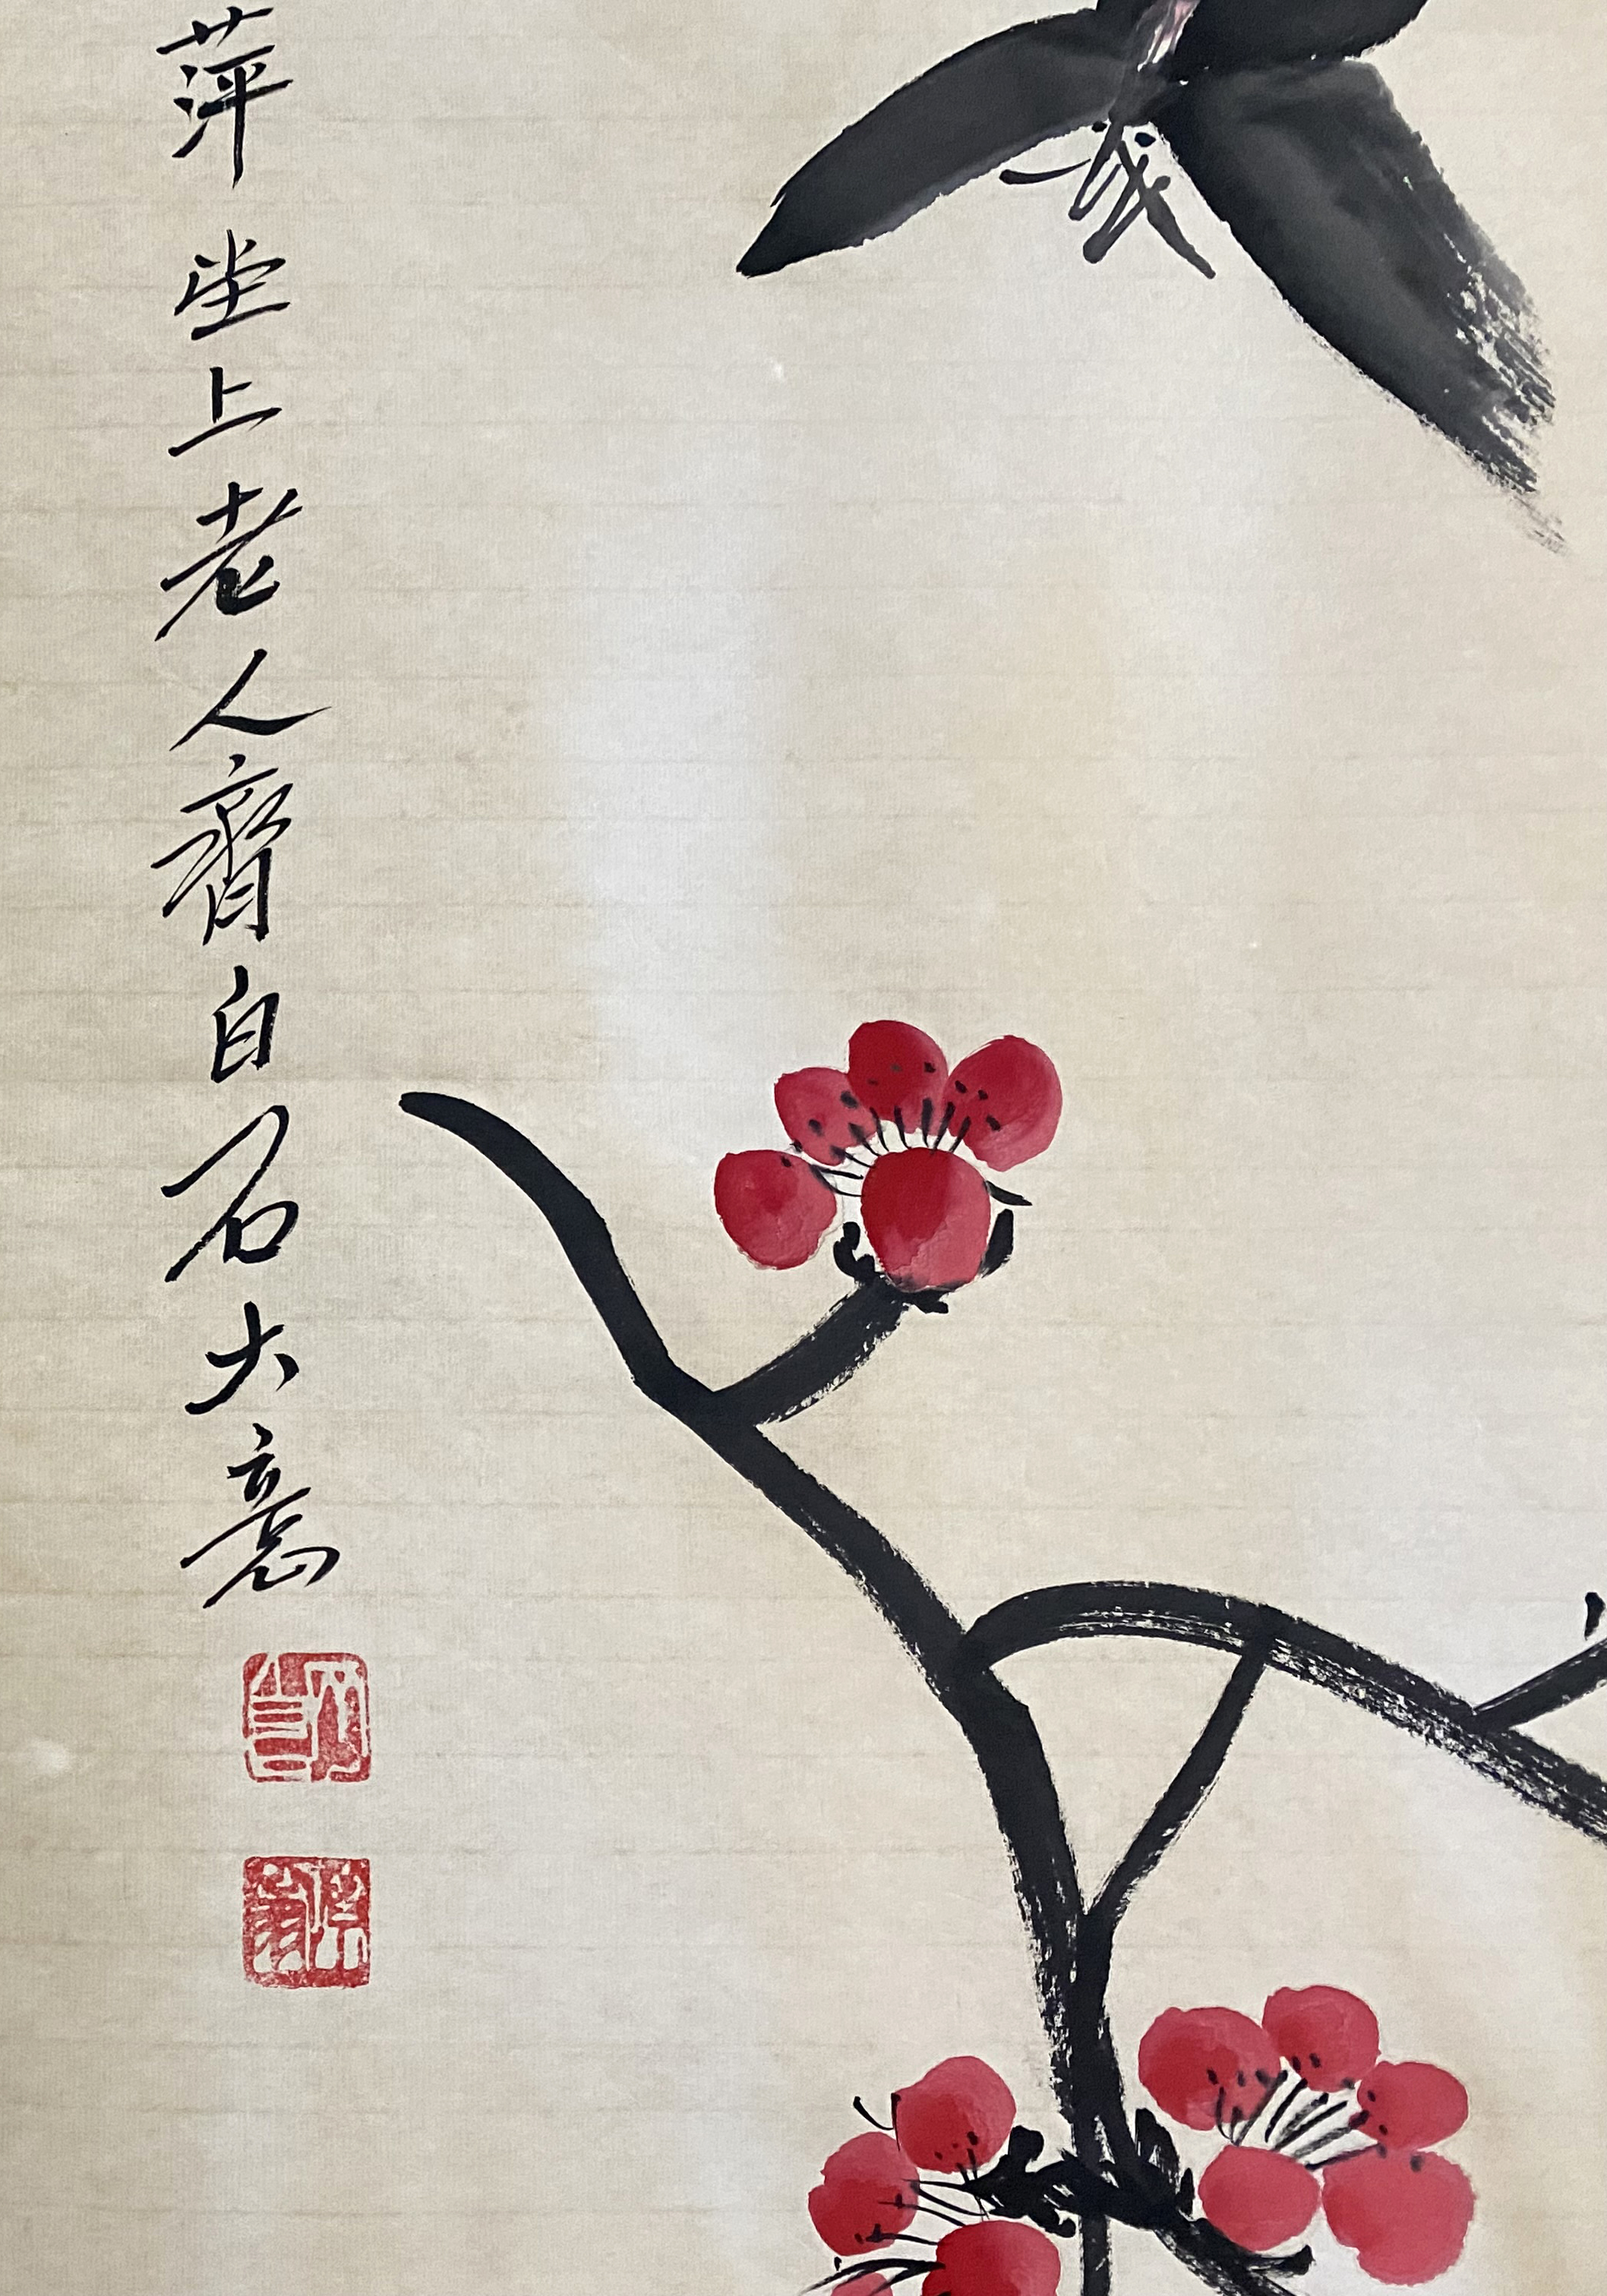 萍坐上老人齊白石大意